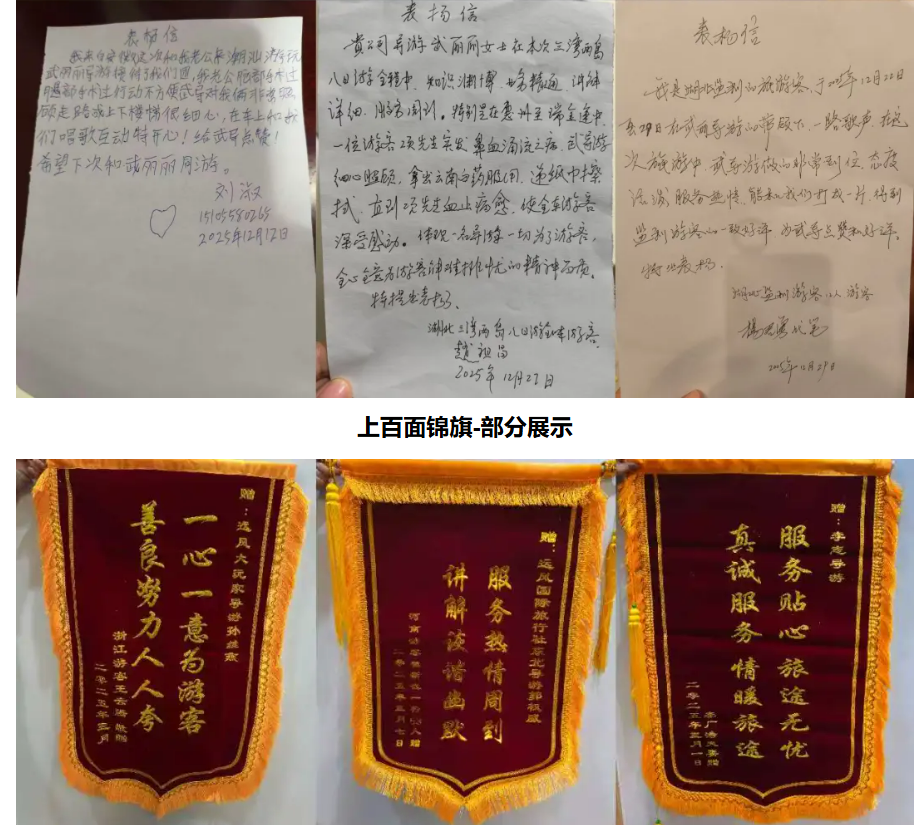 表扬信
我来自安徽这次和我老公来潮汕游玩
武丽丽导游接到了我们团,我老公肥都手术过
腿部手术过行动不方便武导对我俩非常照
顾走路或上下楼梯很细心,在车上和我
们唱歌互动特开心!给武导点赞!
希望下次和武丽丽同游。
刘淑
15105580265
2025年12月12日
表扬信
贵公司导游武丽丽女士在本次三湾两岛
八日游全程中,知识渊博,业务精通,讲解
详细,服务周到。特别是在惠州至瑞金途中,
一位游客项先生突发鼻血涌流之病,武导游
细心照顾,拿出云南白药服用,递纸巾擦
拭,直到项先生血止病愈,使全车游客
深受感动。体现一名导游一切为了游客,
全心全意为游客解难排忧的精神品质。
特提出表扬。
湖北三湾两岛八日游全车游客
赵祖昌
2025年12月27日
表扬信
我是湖北监利的旅游客,于2025年12月22日
至29日在武丽导游的带领下,一路歌声,在这
次旅游中,武导游做的非常到位,态度
活泼,服务热情,能和我们打成一片,得到
监利游客的一致好评,为武导点赞和好评。
特此表扬。
湖北监利游客 游客
2025年12月29日
上百面锦旗-部分展示
赠:远风大玩家导游孙
一心一意为游客
善良努力人人夸
浙江游客王云海敬赠
二零二五年三月
赠:远风国际旅行社东北导游郭权威
服务热情周到
讲解诙谐幽默
河南游客 一行 人赠
二零二五年三月七日
赠:李志导游
服务贴心 旅途无忧
真诚服务 情暖旅途
赠
二零二五年三月一日